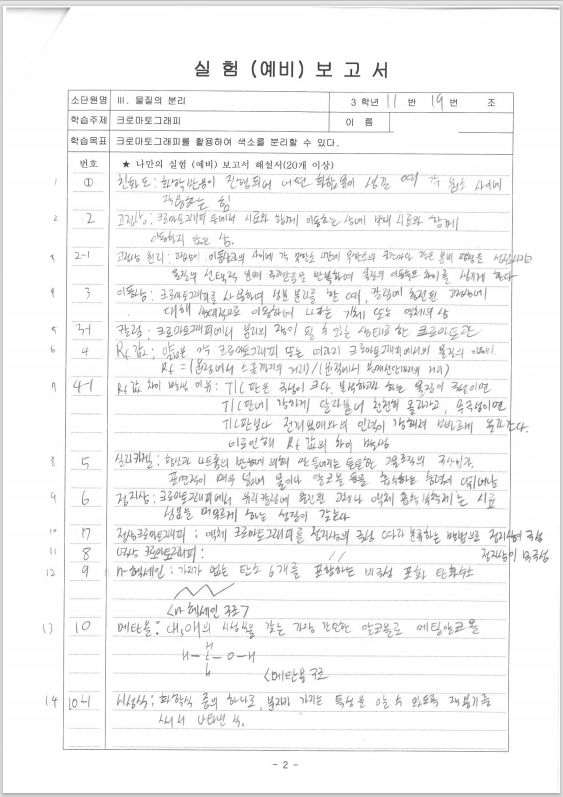 실 험 (예비) 보 고 서
소단원명 III. 물질의 분리 3 학년 11 반 19 번 조
학습주제 크로마토그래피 이 름
학습목표 크로마토그래피를 활용하여 색소를 분리할 수 있다.
번호 ★ 나만의 실험 (예비) 보고서 해설서(20개 이상)
1 ① 친화도 : 화학반응이 진행되어 어떤 화합물이 생길 때 각 원소 사이에
작용하는 힘
2 2 고정상 : 크로마토그래피 등에서 시료와 함께 이동하는 상에 반해 시료와 함께
이동하지 않는 상.
3 2-1 고정상 원리 : 이동상과의 사이에 각
물질의 선택적 분배 반복하며 물질의 이동속도 차이를 한다
4 3 이동상 : 크로마토그래피를 사용하여 성분 분리를 할 때, 칼럼에 충전된 고정상에
대해 상대적으로 이동하며 나가는 기체 또는 액체의 상
5 3-1 칼럼 : 크로마토그래피에서 분리의 장이 될 수 있는 상태로 한 크로마토관
6 4 Rf 값 : 얇은 막 크로마토그래피 또는 여과지 크로마토그래피에서의 물질의 이동비.
Rf = (원점에서 스폿까지의 거리)/(원점에서 용매전단까지의 거리)
7 4-1 Rf 값 차이 발생 이유 : TLC 판은 극성이 크다. 분석하고자 하는 물질이 극성이면
TLC판에 강하게 달라붙어 천천히 올라가고, 무극성이면
TLC판보다 전개용매와의 인력이 강해져 빠르게 올라간다.
이로인해 Rf 값의 차이 발생
8 5 실리카겔 : 황산과 나트륨의 반응에 의해 만들어지는 튼튼한 그물조직의 규산입자.
표면적이 매우 넓어 물이나 알코올 등을 흡수하는 능력이 뛰어남
9 6 정지상 : 크로마토그래피에서 유리칼럼에 충진된 고체나 액체 흡착 시료
성분을 머무르게 하는 성질이 갖는다
10 7 정상크로마토그래피 : 액체 크로마토그래피를 정지상의 극성 따라 분류하는 방법으로 정지상이 극성
11 8 역상 크로마토그래피 : 〃 정지상이 무극성
12 9 n-헥세인 : 가지가 없는 탄소 6개를 포함하는 비극성 포화 탄화수소
<n-헥세인 구조>
13 10 메탄올 : 의 시성식을 갖는 가장 간단한 알코올로 메틸알코올
H
H-C-O-H
H
<메탄올 구조
14 10-1 시성식 : 화학식 중의 하나로, 분자가 가지는 특성을 알 수 있도록 작용기를
써서 나타낸 식.
- 2 -